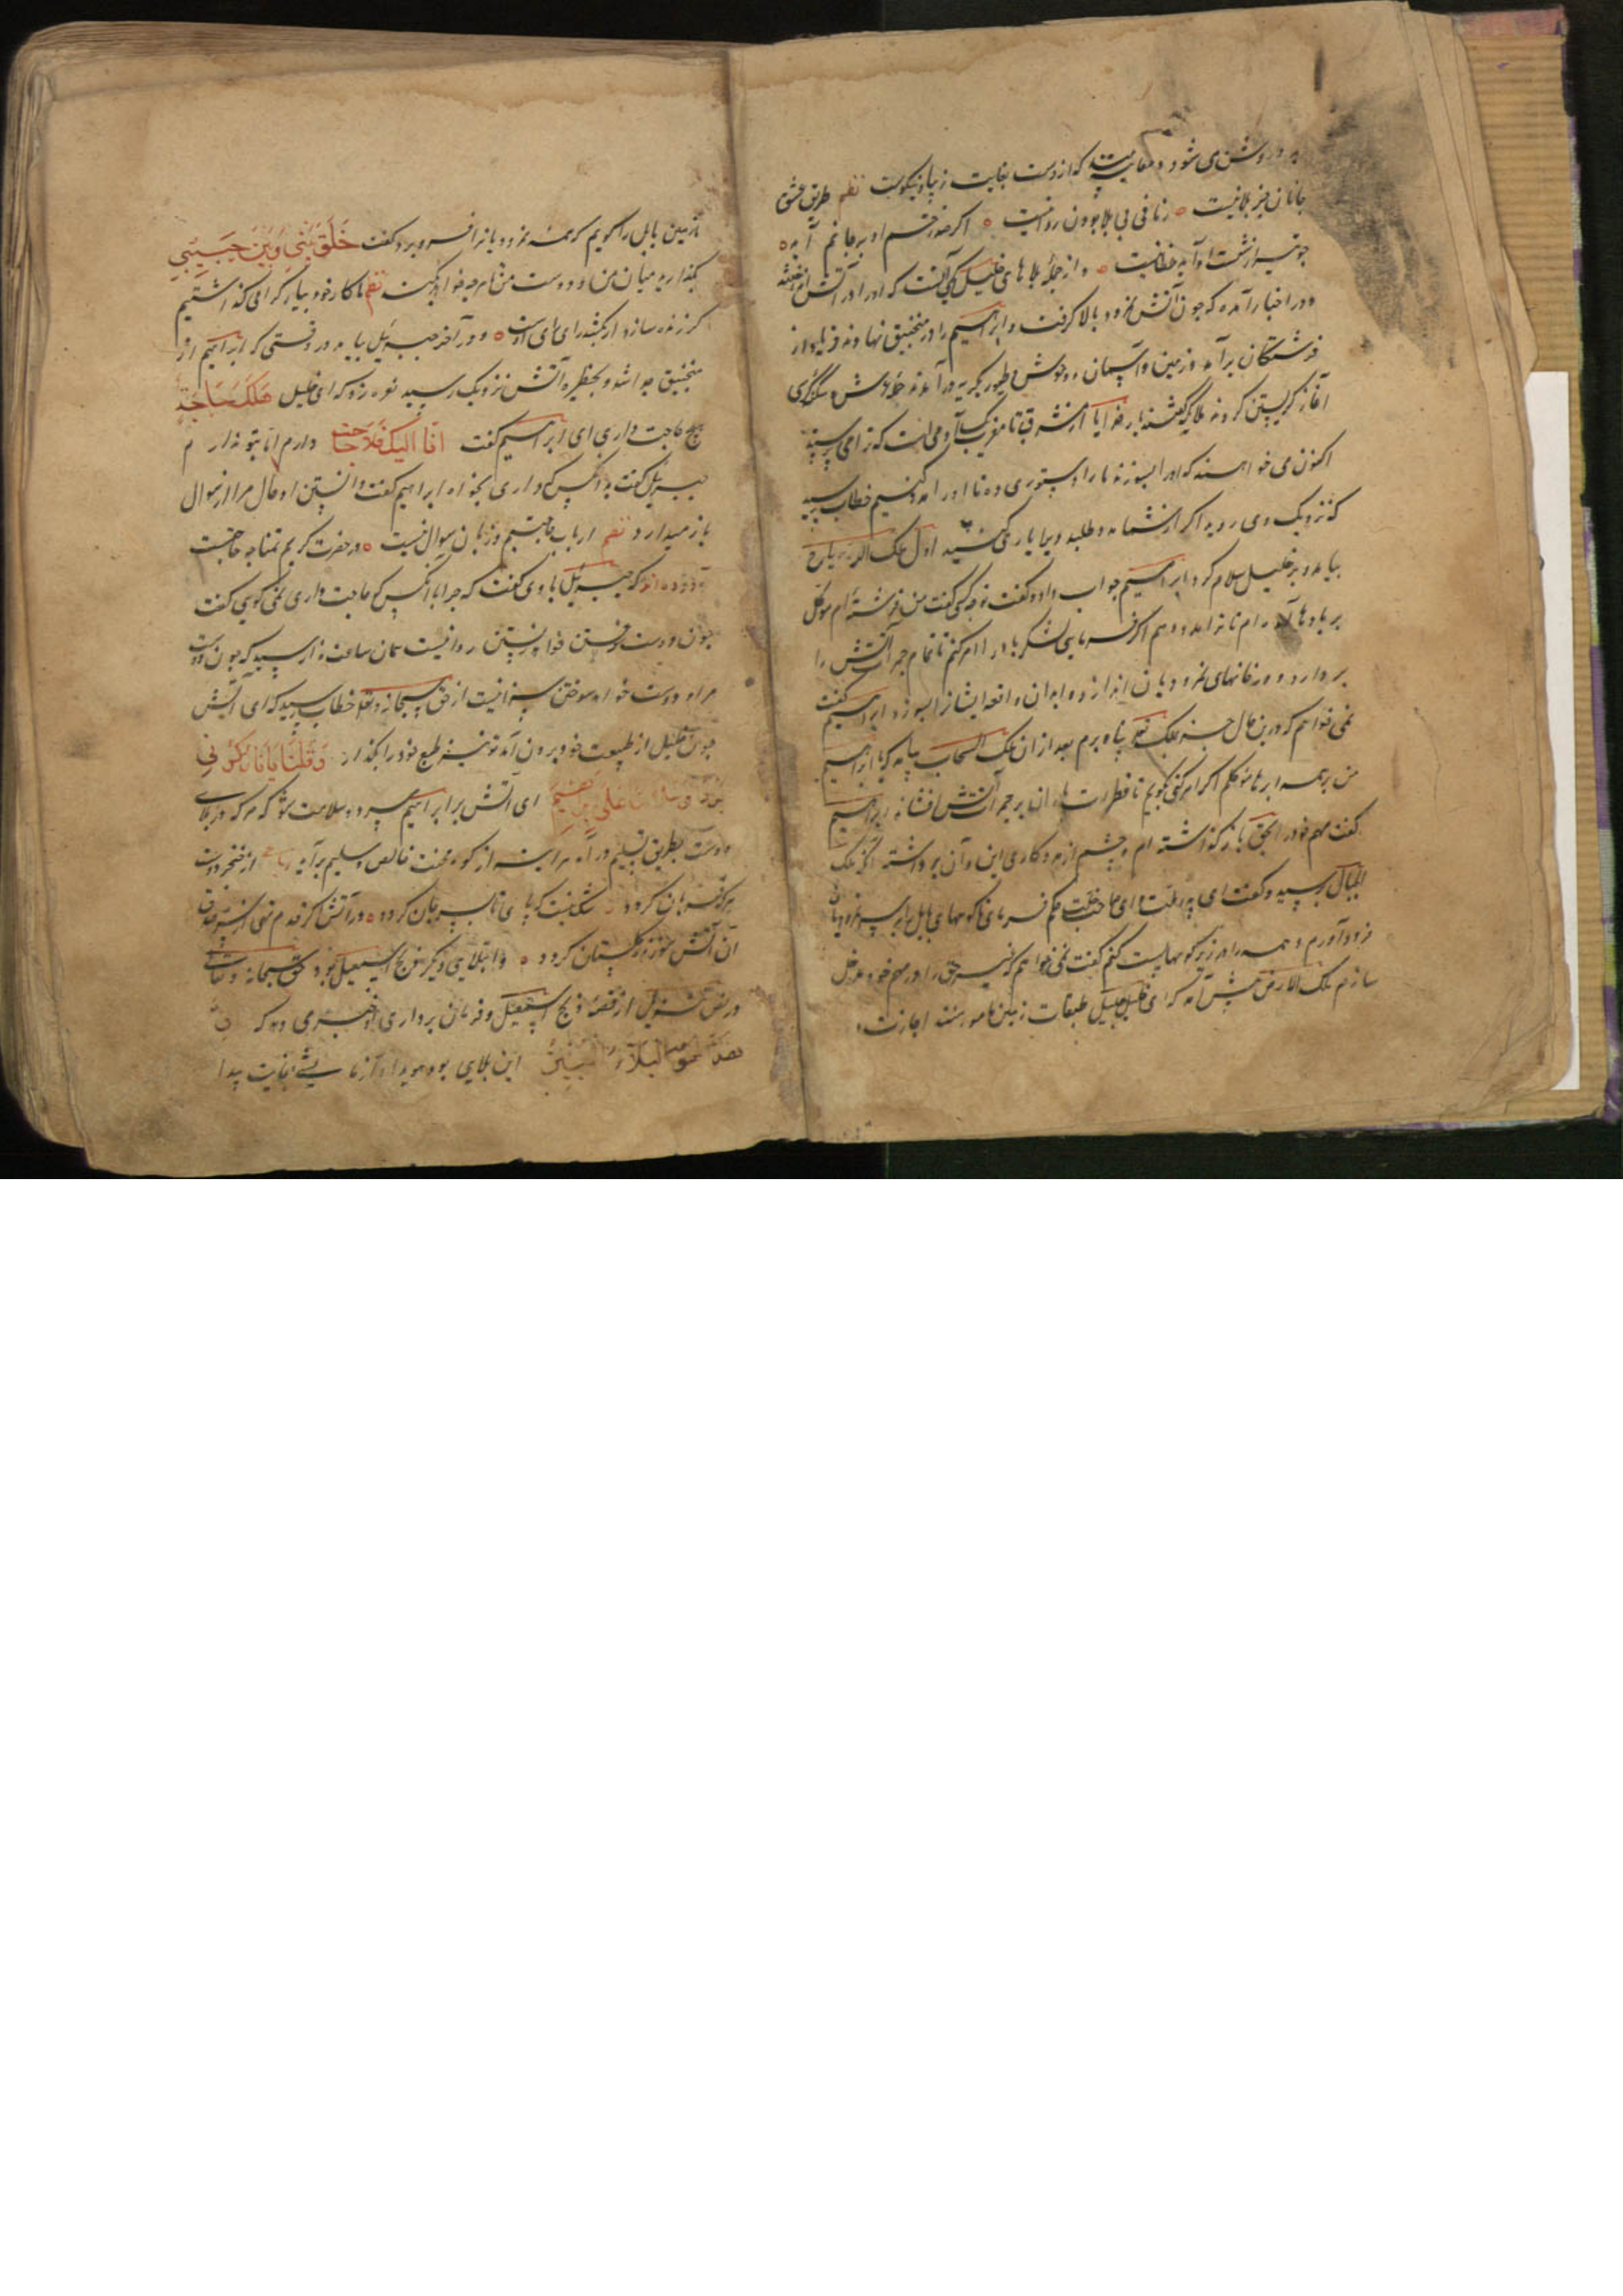 روشن می شود و معاینه میبیند که از دوست بغایت زیبا و نیکوست نظم طریق عشق
جانان جز بلا نیست زمانی بی بلا بودن روا نیست اگر صد زخم او بر جانم آید
چو تیر از شست او آید خطا نیست و از جمله بلاهای خلیل یکی آنست که او را در آتش انداختند
و در اخبار آمده که چون آتش نمرود بالا گرفت و ابراهیم را در منجنیق نهادند فریاد از
فرشتگان برآمد و زمین و آسمان و وحوش و طیور بگریه درآمدند
آغاز گریستن کردند ملایکه گفتند بار خدایا از مشرق تا مغرب یک آدمی است که ترا می پرستد
اکنون می خواهند که او را بسوزند ما را دستوری ده تا او را مدد کنیم خطاب رسید
که نزدیک وی روید اگر از شما مدد طلبد ویرا یاری کنید اول ملک الریاح
بیامد و بر خلیل سلام کرد ابراهیم جواب داد و گفت تو چه کسی گفت من فرشته ام موکل
بر بادها آمده ام تا ترا مدد دهم اگر فرمایی لشکر باد را امر کنم تا تمام جمر آتش را
بردارد و در خانهای نمرودیان اندازد و ابدان و اقعه ایشانرا بسوزد ابراهیم گفت
نمی خواهم که درین حال جز به ملک تعالی پناه برم بعد از ان ملک السحاب بیامد که یا ابراهیم
من بر همه ابرها موکلم اگر امر کنی بگویم تا قطرات باران بر جمر آتش افشاند ابراهیم
گفت مهم خود را بحق باز گذاشته ام و چشم از مددکاری این و آن برداشته آنگه ملک
الجبال برسید و گفت ای پدر ملت و ای صاحب خلت حکم فرمای تا کوههای بابل را بر سر نمرودیان
فرود آورم و همه را در زیر کوهها پست کنم گفت نمی خواهم که غیر حق را در مهم خود مدخل
سازم ملک الارض پیش آمد که ای خلیل جلیل طبقات زمین مامور منند اجازت ده
تا زمین بابل را گویم که همه نمرودیانرا فرو برد گفت خَلِّ بَیْنِی وَبَیْنَ حَبِیبِی
بگذارید میان من و دوست من تا هر چه خواهد کند نظم ما کار خود بیار گرامی گذاشتیم
گر زنده سازد ار بکشد رای رای اوست و در آخر جبرئیل بیامد در وقتی که ابراهیم از
منجنیق جدا شد و بحظیره آتش نزدیک رسید نعره زد که ای خلیل هَل لَکَ حَاجَةٌ
هیچ حاجت داری ای ابراهیم گفت اَمّا اِلَیکَ فَلا حاجت دارم اما بتو ندارم
جبرئیل گفت بدانکس که داری بخواه ابراهیم گفت دانستن او حال مرا از سوال
باز میدارد نظم ارباب حاجتیم و زبان سوال نیست در حضرت کریم تمنا چه حاجتست
آورده اند که جبرئیل با وی گفت که چرا با آنکس که حاجت داری نمی گویی گفت
چون دوست سوختن خواهد رستن روا نیست همان ساعت ندا رسید که چون دوست
مراد دوست خواهد سوختن سزا نیست از حق سبحانه و تعالی خطاب رسید که ای آتش
چون خلیل از طبیعت خود برون آمد تو نیز طبع خود را بگذار وَقُلْنَا یَا نَارُ کُونِی
بَرْدًا وَسَلَامًا عَلَی إِبْرَاهِیمَ ای آتش بر ابراهیم سرد و سلامت شو که هر که در بلای
دوست بطریق تسلیم درآمد هر آینه از کوره محنت خالص و سلیم برآید رباعی از خنجر دوست
هر که قربان گردد شک نیست که پای تا بسر جان گردد در آتش اگر قدم نهی از سر صدق
آن آتش سوزنده گلستان گردد و ابتلایی دیگر ذبح اسمعیل بود حق سبحانه و تعالی
در نص تنزیل از قصه ذبح اسمعیل و فرمان برداری او خبری دهد که اِنَّ
هَذَا لَهُوَ الْبَلَاءُ الْمُبِینُ این بلایی بود هویدا و آزمایشی بغایت پیدا